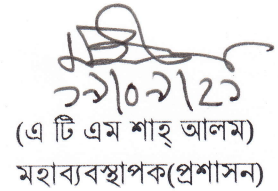 ২৯|০৯|২১
(এ টি এম শাহ্ আলম)
মহাব্যবস্থাপক(প্রশাসন)